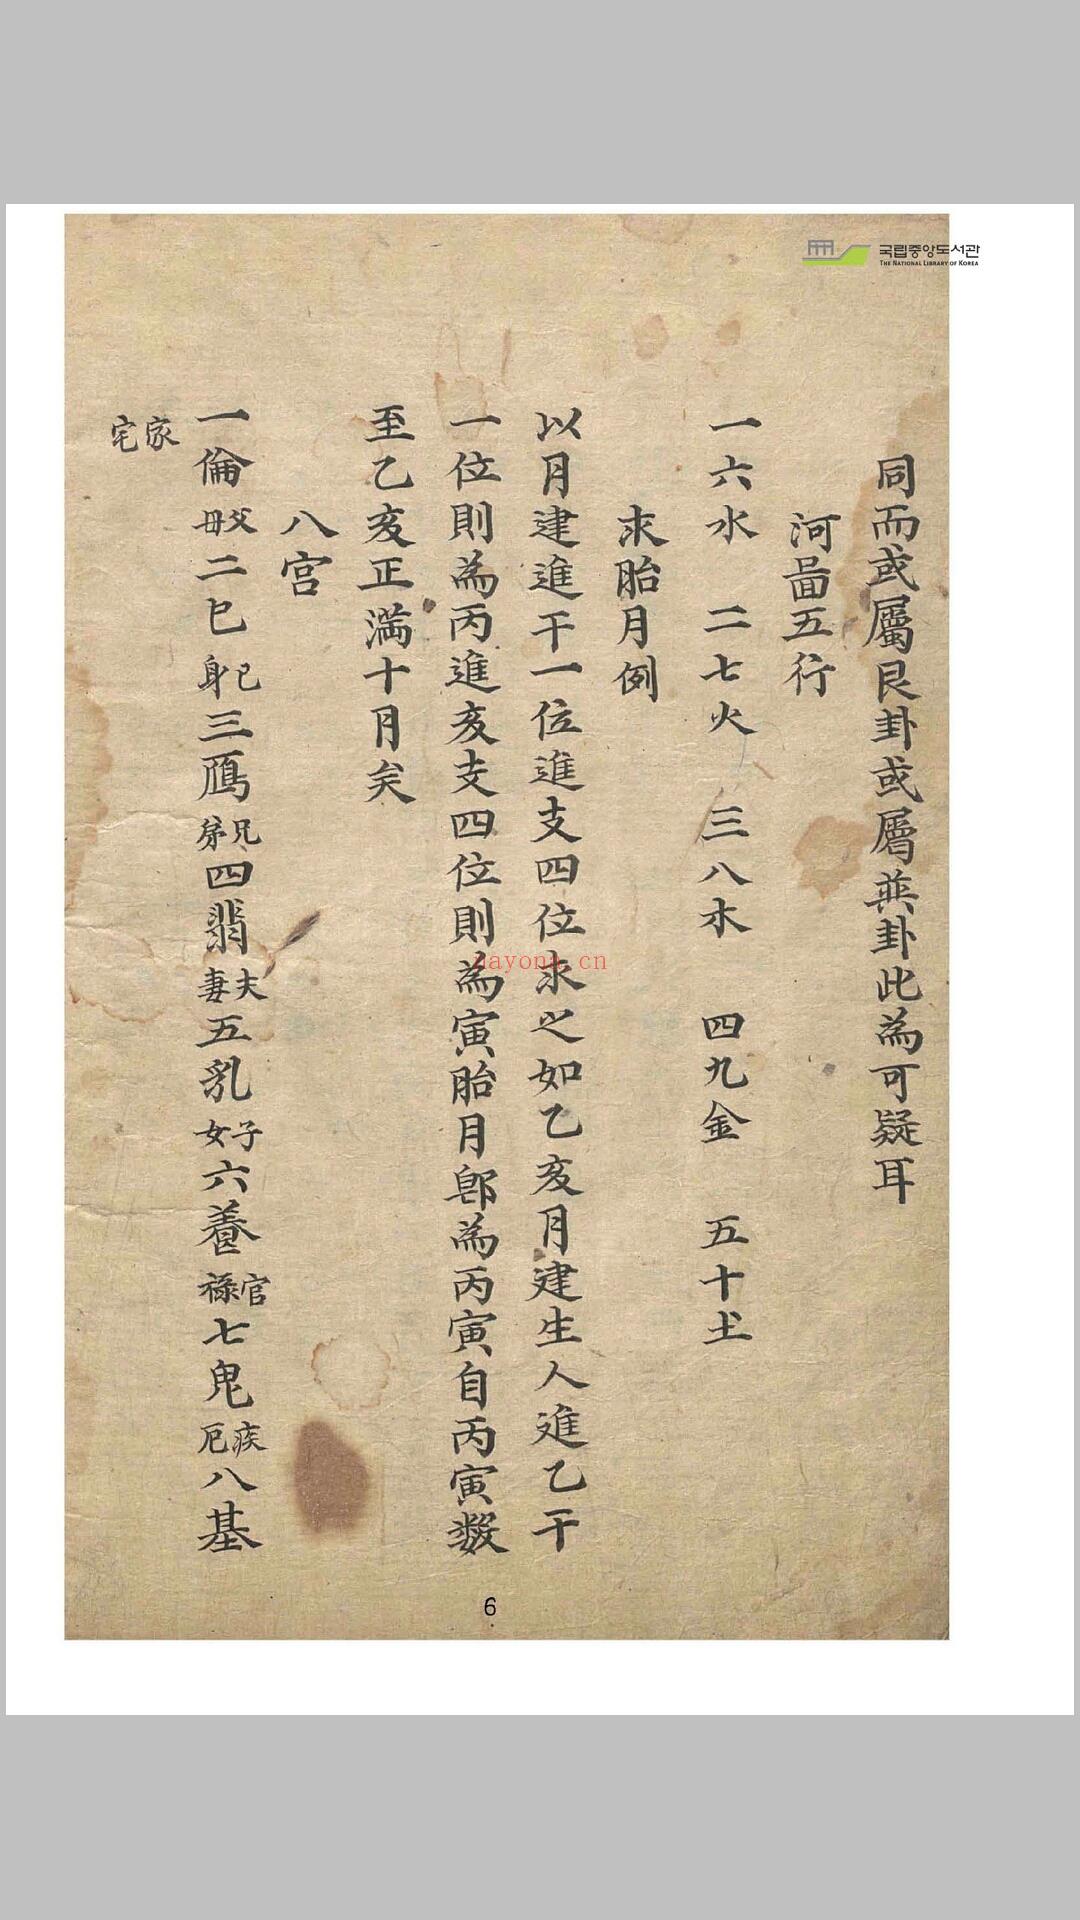 국립중앙도서관
THE NATIONAL LIBRARY OF KOREA
同而或屬艮卦或屬巽卦此為可疑耳
河啚五行
一六水 二七火 三八木 四九金 五十土
求胎月例
以月建進干一位進支四位求之如乙亥月建生人進乙干
一位則為丙進亥支四位則為寅胎月卽為丙寅自丙寅数
至乙亥正滿十月矣
八宮
一倫父母二己己身三鴈兄弟四翡夫妻五乳子女六養官祿七鬼疾厄八基
家宅
nayona.cn
6